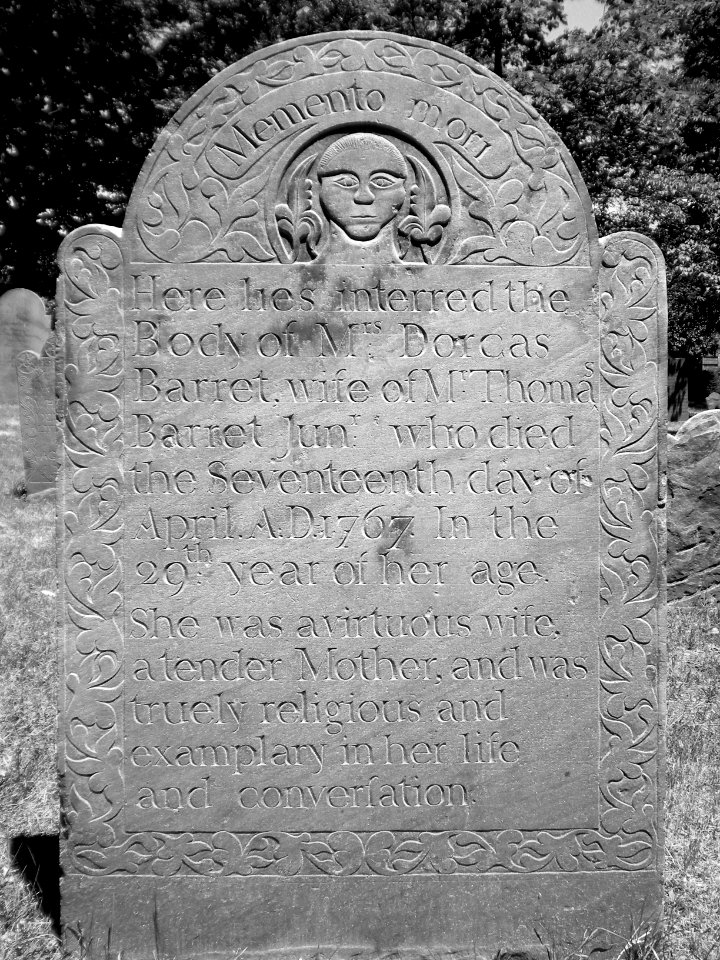 Memento mori
Here lies interred the
Body of Mrs. Dorcas
Barret, wife of Mr Thomas
Barret Junr. who died
the Seventeenth day of
April. A.D:1767. In the
29th: year of her age.
She was a virtuous wife,
a tender Mother, and was
truely religious and
examplary in her life
and converſation.